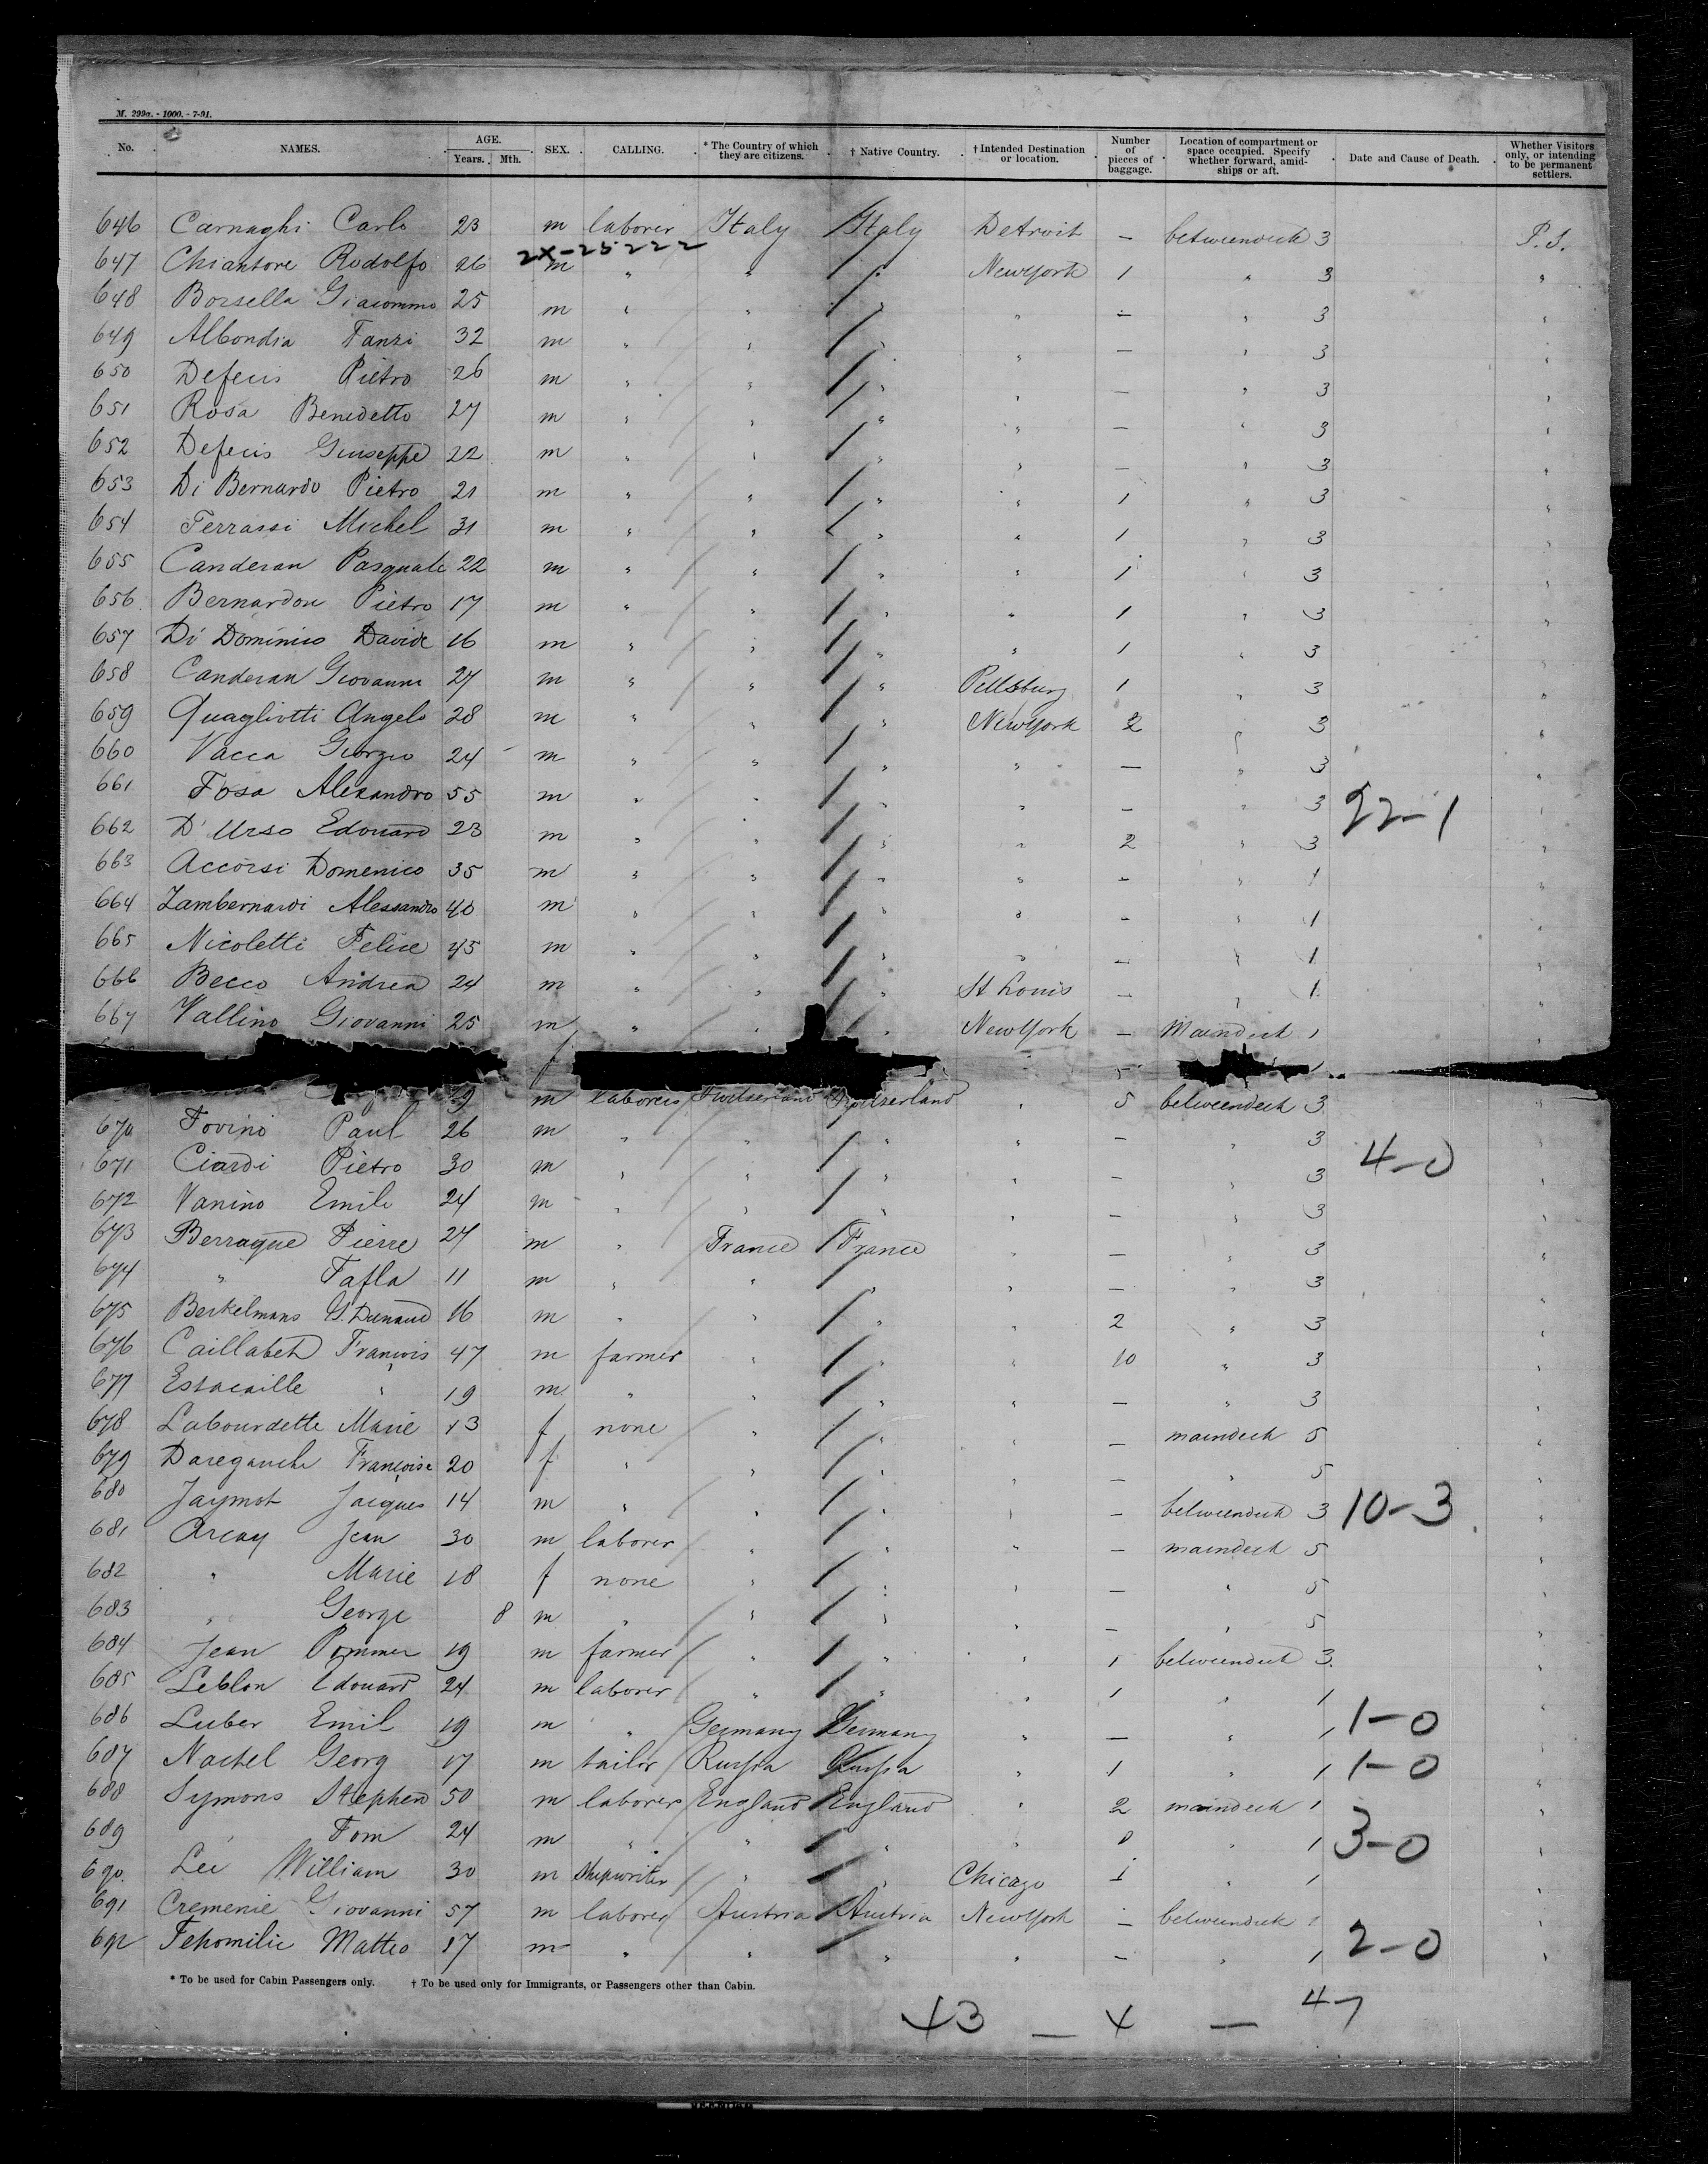 M. 299a. - 1000. - 7-91.
No. NAMES. AGE. Years. Mth. SEX. CALLING. * The Country of which they are citizens. † Native Country. † Intended Destination or location. Number of pieces of baggage. Location of compartment or space occupied. Specify whether forward, amidships or aft. Date and Cause of Death. Whether Visitors only, or intending to be permanent settlers.
646 Carnaghi Carlo 23 m laborer Italy Italy Detroit — betweendeck 3 P.S.
2X-25222
647 Chiantore Rodolfo 26 m " " " New York 1 " 3 "
648 Borsella Giacommo 25 m " " " " — " 3 "
649 Albondia Fanzi 32 m " " " " — " 3 "
650 Defecis Pietro 26 m " " " " — " 3 "
651 Rosa Benedetto 27 m " " " " — " 3 "
652 Defecis Giuseppe 22 m " " " " — " 3 "
653 Di Bernardo Pietro 21 m " " " " 1 " 3 "
654 Ferrassi Michel 31 m " " " " 1 " 3 "
655 Canderan Pasquale 22 m " " " " 1 " 3 "
656 Bernardon Pietro 17 m " " " " 1 " 3 "
657 Di Dominico Davide 16 m " " " " 1 " 3 "
658 Canderan Giovanni 27 m " " " Pittsburg 1 " 3 "
659 Quagliotti Angelo 28 m " " " New York 2 " 3 "
660 Vacca Giorgio 24 m " " " " — " 3 "
661 Fosa Alexandro 55 m " " " " — " 3 22-1 "
662 D'Urso Edouard 23 m " " " " 2 " 3 "
663 Accorsi Domenico 35 m " " " " — " 1 "
664 Zambernardi Alessandro 40 m " " " " — " 1 "
665 Nicoletti Felice 45 m " " " " — " 1 "
666 Becco Andrea 24 m " " " St Louis — " 1 "
667 Vallino Giovanni 25 m " " " New York — Maindeck 1 "
f " 5 1
9 m laborer Switzerland Switzerland " 5 betweendeck 3 "
670 Fovino Paul 26 m " " " " — " 3 "
671 Ciardi Pietro 30 m " " " " — " 3 4-0 "
672 Vanino Emile 24 m " " " " — " 3 "
673 Berraque Pierre 27 m " France France " — " 3 "
674 " Fafla 11 m " " " " — " 3 "
675 Berkelmans G. Dunaud 16 m " " " " 2 " 3 "
676 Caillabeth François 47 m farmer " " " 10 " 3 "
677 Estacaille " 19 m " " " " — " 3 "
678 Labourdette Marie 13 f none " " " — maindeck 5 "
679 Daregauche Françoise 20 f " " " " — " 5 "
680 Jaymot Jacques 14 m " " " " — betweendeck 3 10-3 "
681 Arcay Jean 30 m laborer " " " — maindeck 5 "
682 " Marie 18 f none " " " — " 5 "
683 " George 8 m " " " " — " 5 "
684 Jean Pommer 19 m farmer " " " 1 betweendeck 3 "
685 Leblon Edouard 24 m laborer " " " 1 " 1 "
686 Luber Emil 19 m " Germany Germany " — " 1 1-0 "
687 Nachel Georg 17 m tailor Russia Russia " 1 " 1 1-0 "
688 Symons Stephen 50 m laborer England England " 2 maindeck 1 "
689 " Tom 24 m " " " " " 1 3-0 "
690 Lee William 30 m " " Chicago 1 " 1 "
691 Cremenie Giovanni 57 m laborer Austria Austria New York — betweendeck 1 "
692 Fehomilic Matteo 17 m " " " " — " 1 2-0 "
* To be used for Cabin Passengers only. † To be used only for Immigrants, or Passengers other than Cabin.
43 — 4 — 47